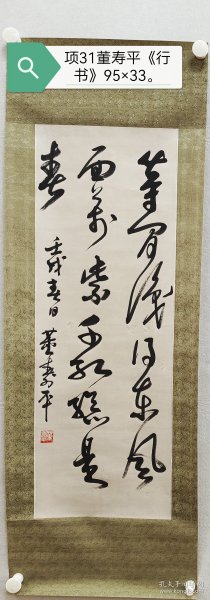 项31董寿平《行
书》95×33。
等闲识得东风
面万紫千红总是
春
壬戌春日 董寿平